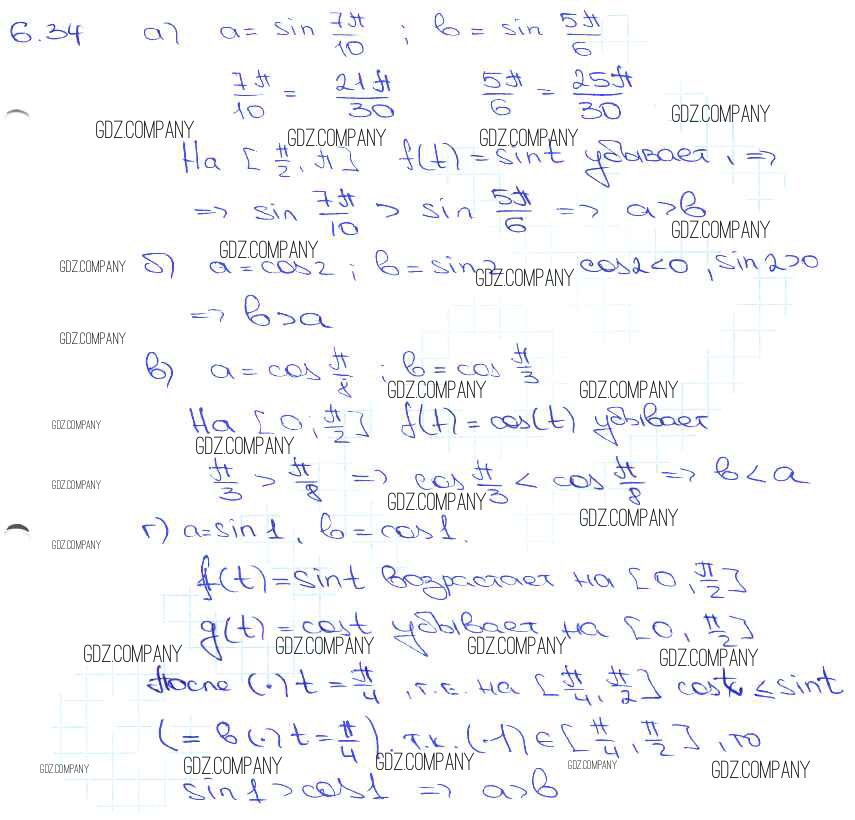 6.34 а) a = sin 7π/10 ; b = sin 5π/6
7π/10 = 21π/30 5π/6 = 25π/30
GDZ.COMPANY
GDZ.COMPANY GDZ.COMPANY GDZ.COMPANY
На [π/2, π] f(t) = sint убывает, =>
=> sin 7π/10 > sin 5π/6 => a>b
GDZ.COMPANY
GDZ.COMPANY
GDZ.COMPANY б) a = cos2 ; b = sin2 cos2<0, sin2>0
GDZ.COMPANY
=> b>a
GDZ.COMPANY
в) a = cos π/8 ; b = cos π/3
GDZ.COMPANY GDZ.COMPANY
GDZ.COMPANY На [0; π/2] f(t) = cos(t) убывает
GDZ.COMPANY
GDZ.COMPANY π/3 > π/8 => cos π/3 < cos π/8 => b<a
GDZ.COMPANY GDZ.COMPANY
г) a=sin1, b=cos1.
GDZ.COMPANY
f(t)=sint возрастает на [0, π/2]
g(t)=cost убывает на [0, π/2]
GDZ.COMPANY GDZ.COMPANY GDZ.COMPANY GDZ.COMPANY
после (·) t = π/4, т.е. на [π/4, π/2] cost ≤ sint
(= в (·) t = π/4). т.к. (·1) ∈ [π/4, π/2], то
GDZ.COMPANY GDZ.COMPANY GDZ.COMPANY GDZ.COMPANY GDZ.COMPANY
sin1>cos1 => a>b